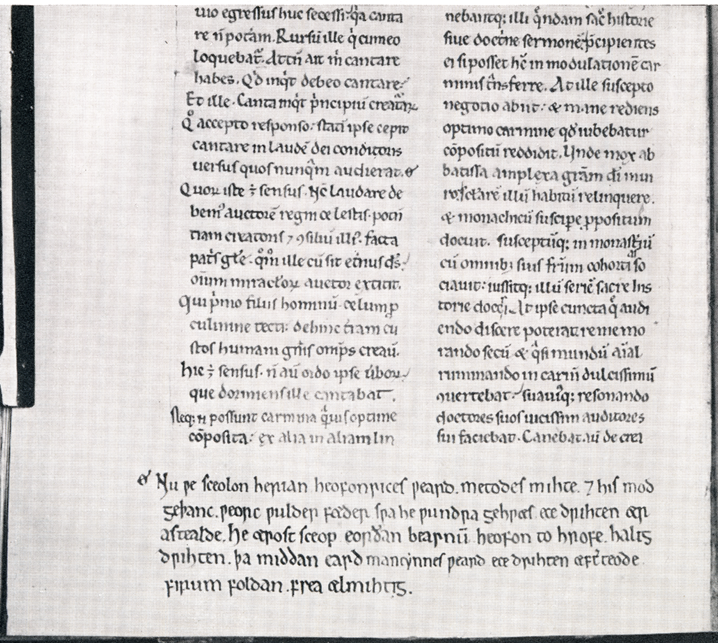 uio egressus huc secessi: q̃a canta
re ñ potam. Rursũ ille q̓ cũ eo
loquebat̃. Attñ ait m̃ cantare
habes. Q̓d inq̓t debeo cantare?
Et ille. Canta inq̓t p̓ncipiũ creatarꝝ.
Q̓ accepto responso: stati ipse cepit
cantare in laudẽ dei conditoris
uersus quos nunq̃m audierat.
Quoꝝ iste ÷ sensus. Nc̃ laudare de
bemꝰ auctorẽ regni celestis. potẽ
tiam creatoris ⁊ ꝯsiliũ illiꝰ. facta
pat̃s gl̃e. q̃m ille cũ sit et̃nus d̃s.
oĩum miracl̃oꝝ auctor extitit.
Qui p̓mo filiis hominũ celum ꝓ
culmine tecti: dehinc t̃ram cũ
stos humani gñis omp̃s creauit.
hic ÷ sensus. ñ aũ ordo ipse ũboꝝ.
que dormiens ille cantabat.
Neq; ñ possunt carmina q̃uis optime
cõposita: ex alia in aliam lin
nebantq; illi q̃ndam sac̃ historie
siue doct̓ne sermonẽ: p̃cipientes
ei si posset hc̃ in modulationẽ car
minis t̃nsferre. At ille suscepto
negotio abiit: & mane rediens
optimo carmine qđ iubebatur
cõpositũ reddidit. Unde mox ab
batissa amplexa gr̃am dĩ in ui
ro: sclare illũ habitũ relinquere.
& monachicũ suscipe p̱positum
docuit. susceptũq; in monast̃iũ
cũ omnib; suis fr̃um cohorti so
ciauit: iussitq; illũ seriẽ sacre his
torie doceri. At ipse cuncta q̃ audi
endo discere poterat rememo
rando secũ & q̃si mundũ aĩal
ruminando in carm̃ dulcissimũ
ꝯuertebat: suauiꝰq; resonando
doctores suos uicissim auditores
sui faciebat. Canebat aũ de crea
Nu ƿe sceolon herian heofonrices ƿeard. metodes mihte. ⁊ his mod
geþanc. ƿeorc ƿulder fæder. sƿa he ƿundra gehƿæs ece drihten ær
astealde. He ærost sceop eorðan bearnũ heofon to hrofe. halig
drihten. þa middan eard mancynnes ƿeard ece drihten æft̃ teode
firum foldan. frea ælmihtig.